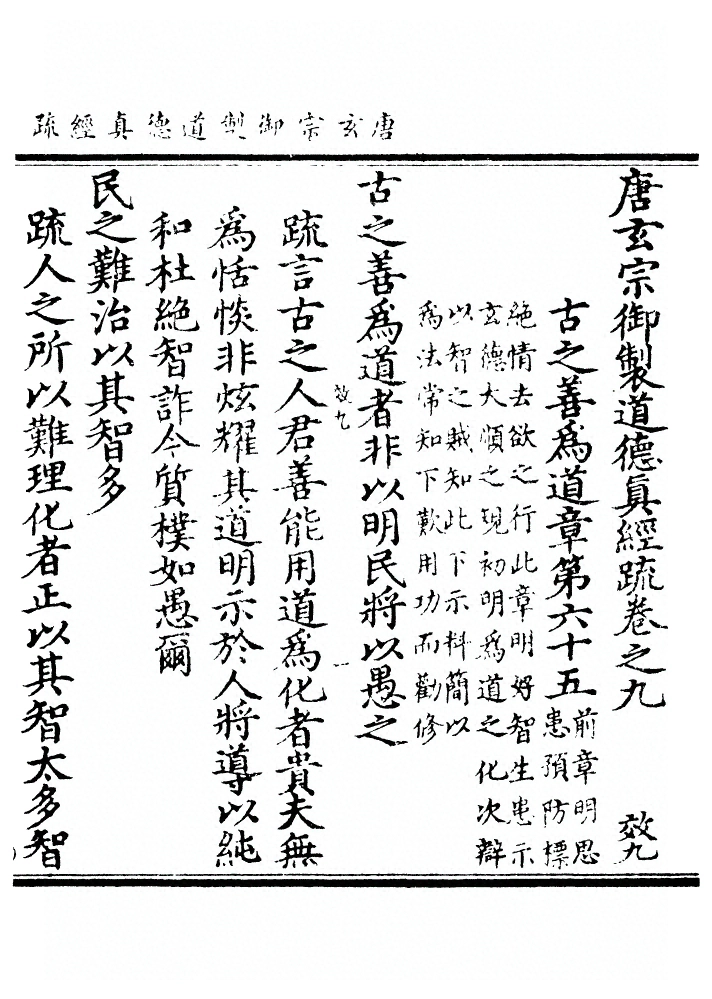 唐玄宗御製道德真經疏
唐玄宗御製道德真經疏卷之九 效九
古之善爲道章第六十五 前章明思
患預防標
絶情去欲之行此章明好智生患示
玄德大順之現初明爲道之化次辯
以智之賊知此下示料簡以
爲法常知下歎用功而勸修
古之善爲道者非以明民將以愚之
效九 一
疏言古之人君善能用道爲化者貴夫無
爲恬惔非炫耀其道明示於人將導以純
和杜絶智詐令質樸如愚爾
民之難治以其智多
疏人之所以難理化者正以其智太多智